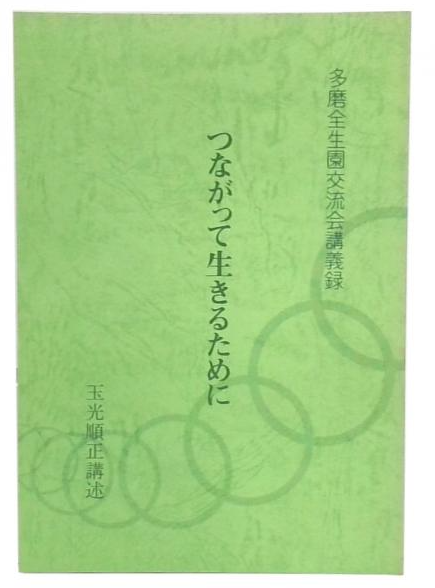 多磨全生園交流会講義録
つながって生きるために
玉光順正講述